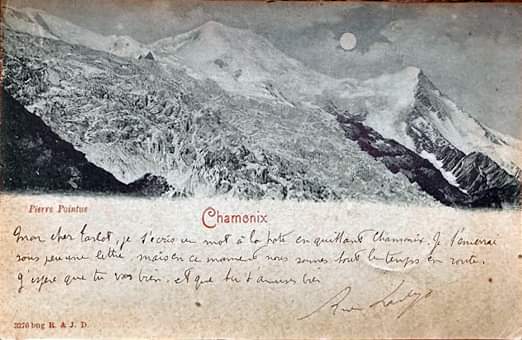 Pierre Pointue
Chamonix
Mon cher , je t'écris un mot à la hâte en quittant Chamonix. Je t'enverrai
sous peu une lettre mais en ce moment nous sommes tout le temps en route.
J'espère que tu vas bien et que tu t'amuses bien
3276 bug R. & J. D.